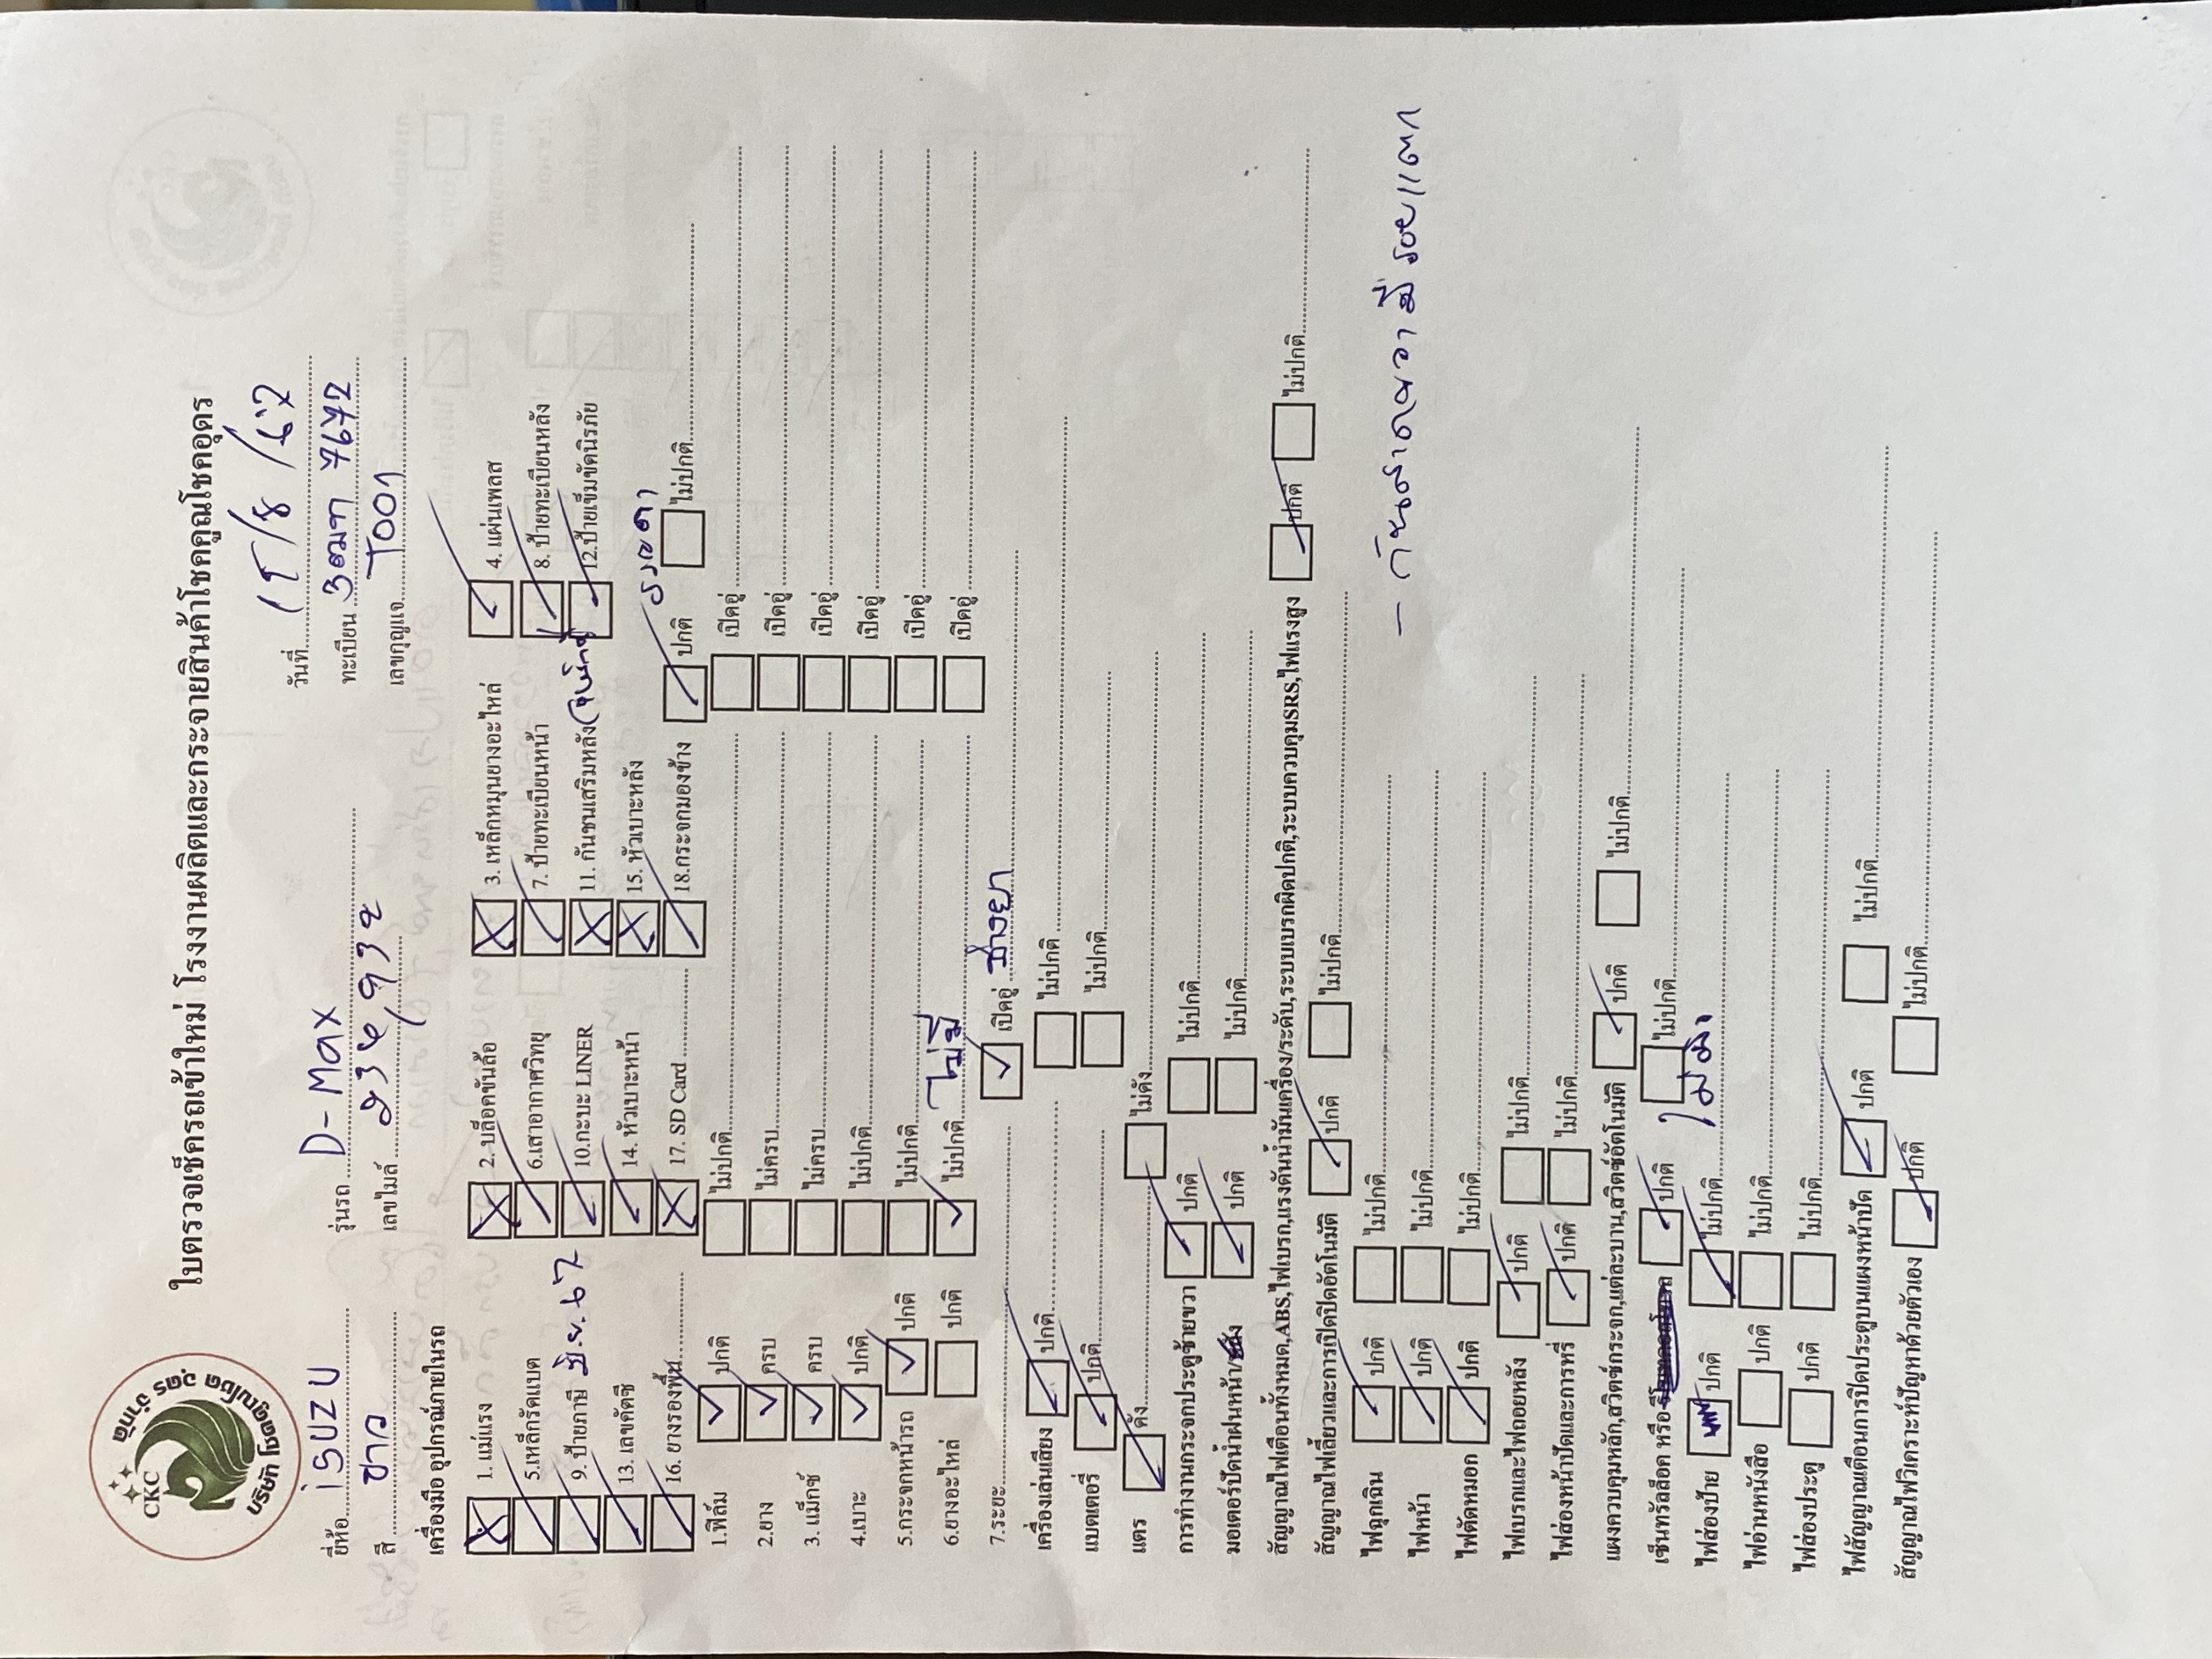 CKC
บริษัท โชคคูณโชค อุดร จำกัด
ใบตรวจเช็ครถเข้าใหม่ โรงงานผลิตและกระจายสินค้าโชคคูณโชคอุดร
วันที่
ยี่ห้อ iSUZU รุ่นรถ D-Max ทะเบียน 7672
สี ขาว เลขไมล์ เลขกุญแจ T001
เครื่องมือ อุปกรณ์ภายในรถ
1. แม่แรง 2. บล็อคขันล้อ 3. เหล็กหมุนยางอะไหล่ 4. แผ่นเพลส
5.เหล็กรัดแบต 6.เสาอากาศวิทยุ 7. ป้ายทะเบียนหน้า 8. ป้ายทะเบียนหลัง
9. ป้ายภาษี มิ.ย. 67 10.กะบะ LINER 11. กันชนเสริมหลัง 12.ป้ายเข็มขัดนิรภัย
13. เลขคัตซี 14. หัวเบาะหน้า 15. หัวเบาะหลัง
16. ยางรองพื้น 17. SD Card 18.กระจกมองข้าง ปกติ ไม่ปกติ
1.ฟิล์ม ปกติ ไม่ปกติ เปิดอู่
2.ยาง ครบ ไม่ครบ เปิดอู่
3. แม็กซ์ ครบ ไม่ครบ เปิดอู่
4.เบาะ ปกติ ไม่ปกติ เปิดอู่
5.กระจกหน้ารถ ปกติ ไม่ปกติ เปิดอู่
6.ยางอะไหล่ ปกติ ไม่ปกติ ไม่มี เปิดอู่
7.ระยะ เปิดอู่
เครื่องเล่นเสียง ปกติ ไม่ปกติ
แบตเตอรี่ ปกติ ไม่ปกติ
แตร ดัง ไม่ดัง
การทำงานกระจกประตูซ้ายขวา ปกติ ไม่ปกติ
มอเตอร์ปัดน้ำฝนหน้า ปกติ ไม่ปกติ
สัญญาณไฟเตือนทั้งหมด,ABS,ไฟเบรก,แรงดันน้ำมันเครื่อง/ระดับ,ระบบเบรกผิดปกติ,ระบบควบคุมSRS,ไฟแรงสูง ปกติ ไม่ปกติ
สัญญาณไฟเลี้ยวและการเปิดปิดอัตโนมัติ ปกติ ไม่ปกติ
ไฟฉุกเฉิน ปกติ ไม่ปกติ
ไฟหน้า ปกติ ไม่ปกติ
ไฟตัดหมอก ปกติ ไม่ปกติ
ไฟเบรกและไฟถอยหลัง ปกติ ไม่ปกติ
ไฟส่องหน้าปัดและการหรี่ ปกติ ไม่ปกติ
แผงควบคุมหลัก,สวิตซ์กระจก,แต่ละบาน,สวิตซ์อัตโนมัติ ปกติ ไม่ปกติ
เซ็นทรัลล็อค หรือ ปกติ ไม่ปกติ
ไฟส่องป้าย ปกติ ไม่ปกติ
ไฟอ่านหนังสือ ปกติ ไม่ปกติ
ไฟส่องประตู ปกติ ไม่ปกติ
ไฟสัญญาณเตือนการปิดประตูบนแผงหน้าปัด ปกติ ไม่ปกติ
สัญญาณไฟวิเคราะห์ปัญหาด้วยตัวเอง ปกติ ไม่ปกติ